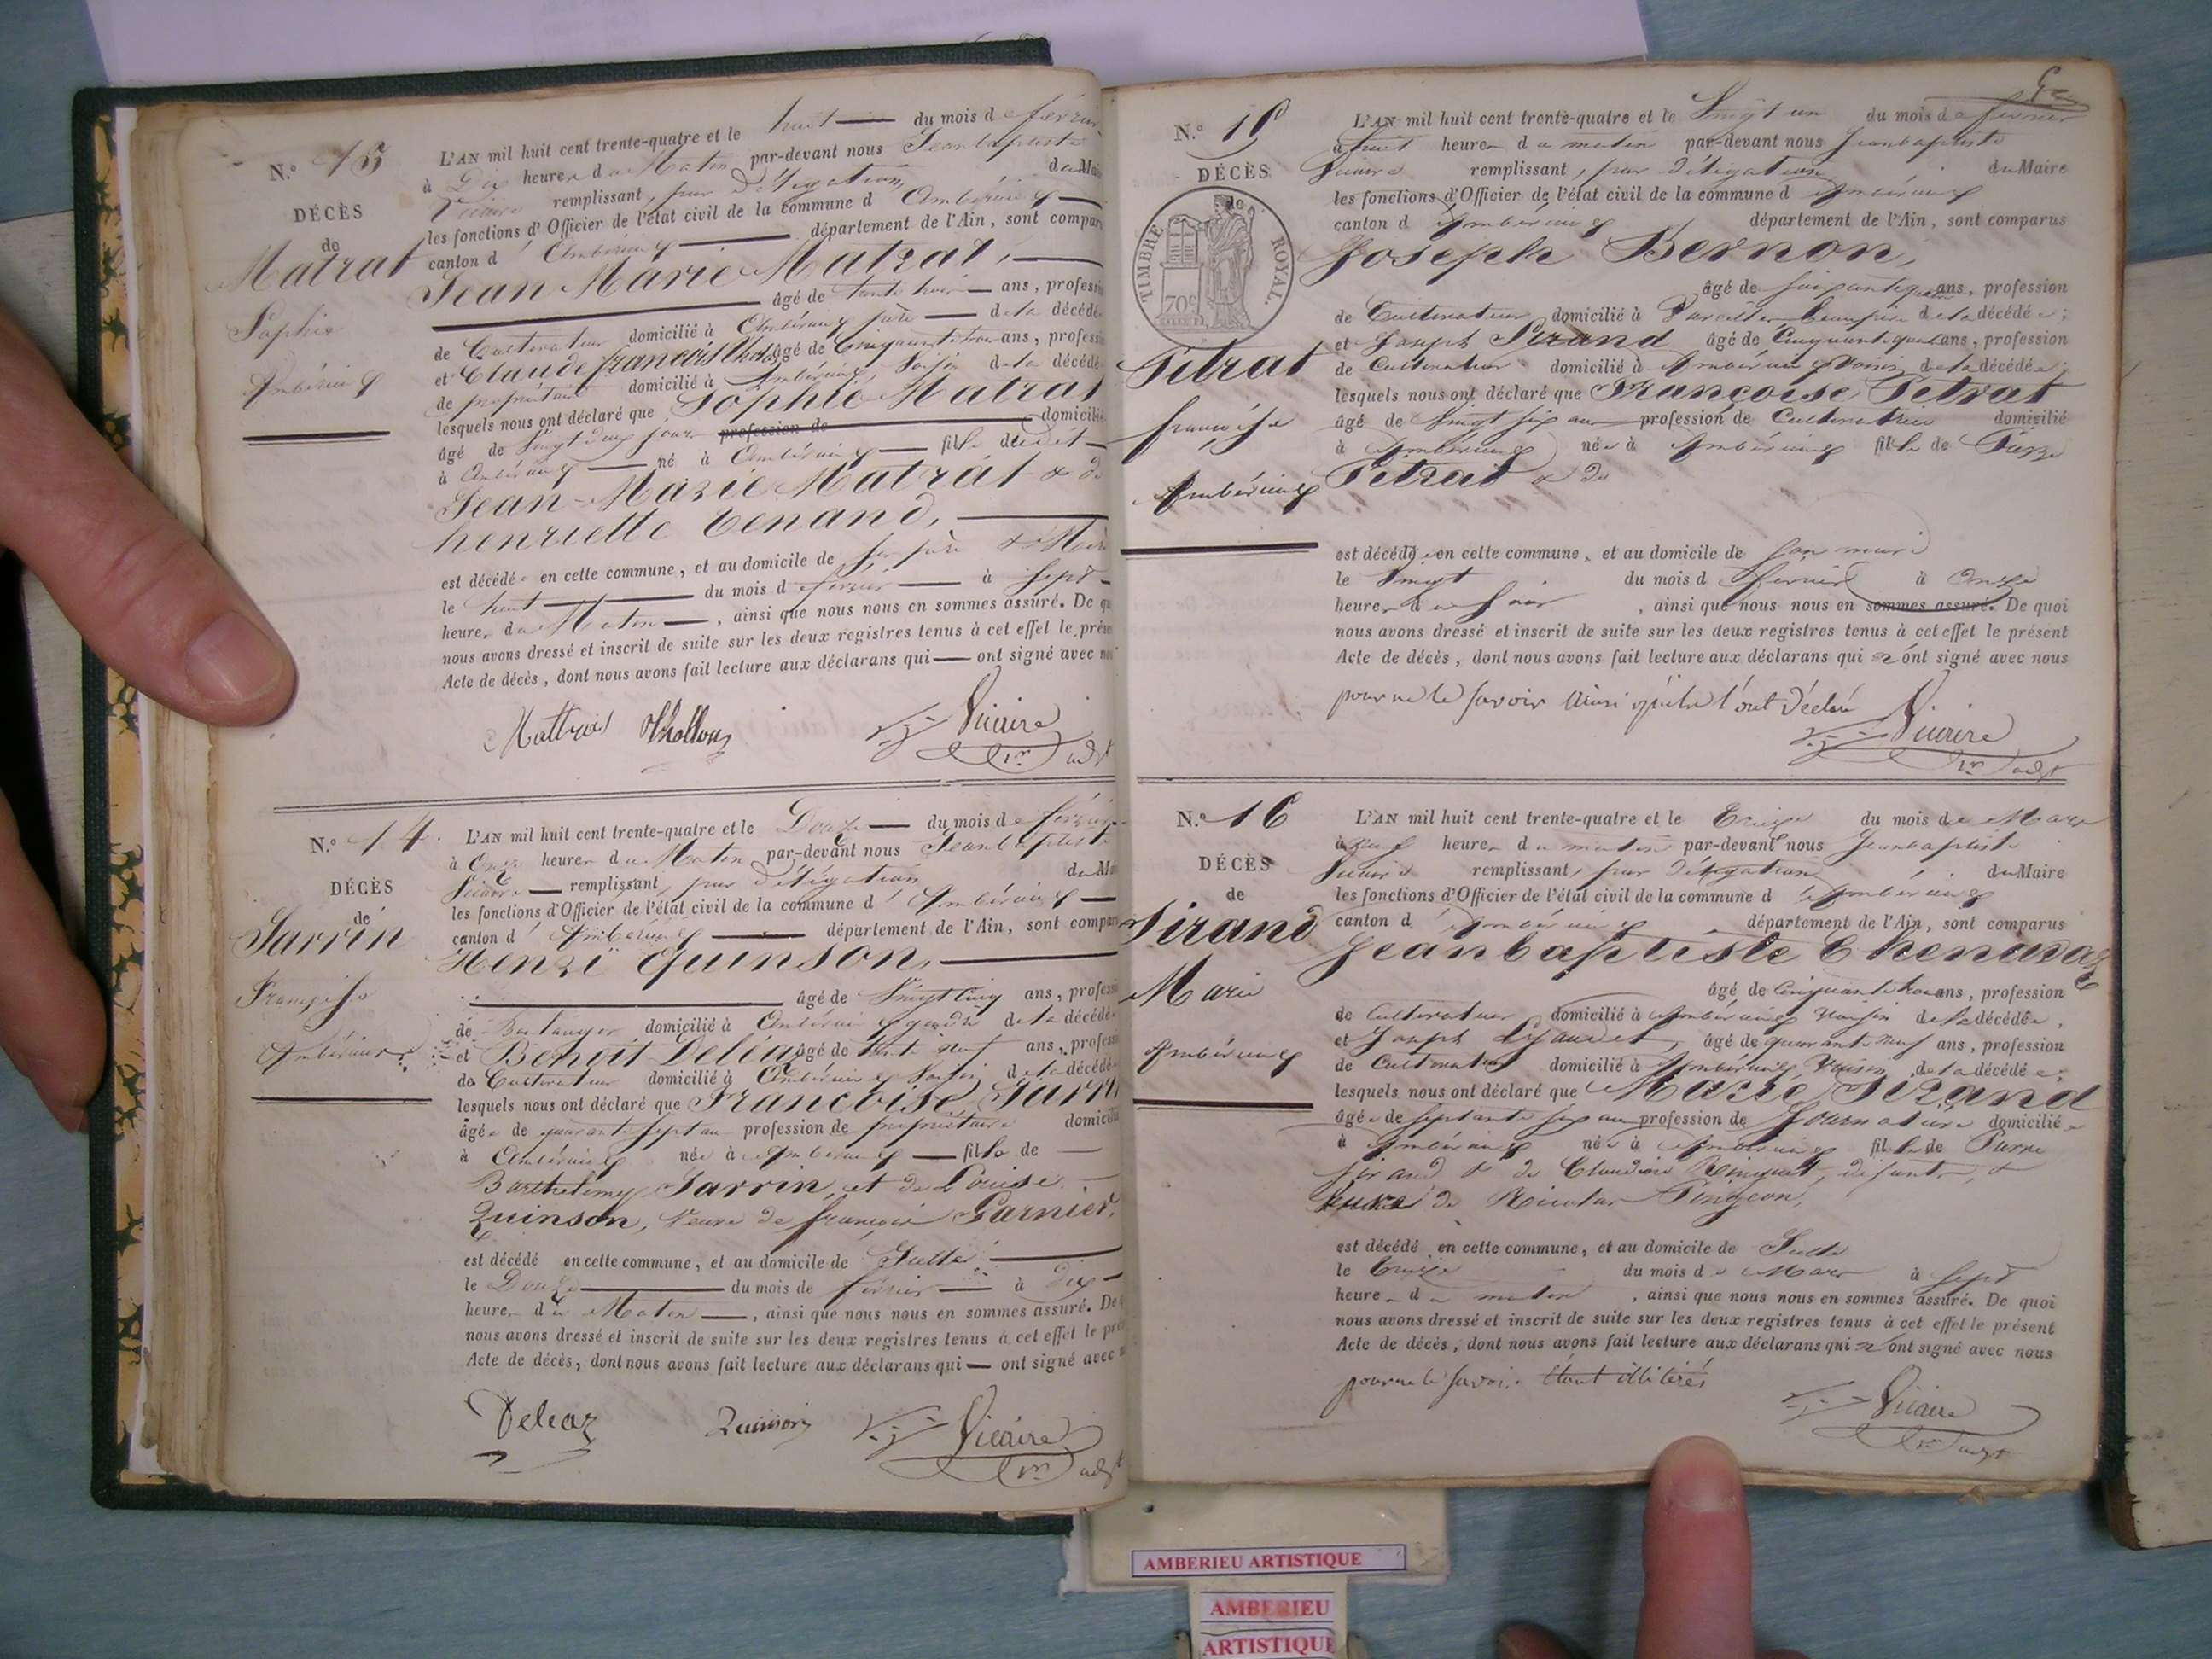 N.º 13
DÉCÈS
de
Matrat
Sophie
Ambérieux
L'AN mil huit cent trente-quatre et le huit du mois de février
à Dix heures du Matin par-devant nous Jean baptiste
Vicaire remplissant, par Délégation, du Mai
les fonctions d'Officier de l'état civil de la commune d'Ambérieux
canton d'Ambérieux département de l'Ain, sont compar
Jean Marie Matrat,
âgé de trente trois ans, professi
de Cultivateur domicilié à Ambérieux père de la décédée
et Claude françois âgé de Cinquante trois ans, professi
de propriétaire domicilié à Ambérieux, Voisin de la décédé
lesquels nous ont déclaré que Sophie Matrat
âgé de Vingt deux jours profession de domicilié
à Ambérieux né à Ambérieux fille de
Jean-Marie Matrat & de
henriette tenand,
est décédée en cette commune, et au domicile de ses père & Mère
le huit du mois de février à Sept
heures du Matin, ainsi que nous nous en sommes assuré. De qu
nous avons dressé et inscrit de suite sur les deux registres tenus à cet effet le prése
Acte de décès, dont nous avons fait lecture aux déclarans qui ont signé avec nou
Mattras Chollou
Vicaire
1er adjt
N.º 14.
DÉCÈS
de
Sarrin
Françoise
Ambérieux
L'AN mil huit cent trente-quatre et le Douze du mois de février
à Onze heures du Matin par-devant nous Jean baptiste
Vicaire remplissant, par Délégation du Mai
les fonctions d'Officier de l'état civil de la commune d'Ambérieux
canton d'Ambérieux département de l'Ain, sont compar
Henri Quinson,
âgé de Vingt Cinq ans, professi
de Boulanger domicilié à Ambérieux gendre de la décédée
et Benoit Deléaz âgé de trente neuf ans, professi
de Cultivateur domicilié à Ambérieux Voisin de la décédé
lesquels nous ont déclaré que Françoise Sarrin
âgée de quarante sept ans profession de propriétaire domicilié
à Ambérieux née à Ambérieux fille de
Barthelemy Sarrin, et de Louise
Quinson, Veuve de françois Garnier,
est décédé en cette commune, et au domicile de Sulte
le Douze du mois de février à Dix
heures du Matin, ainsi que nous nous en sommes assuré. De
nous avons dressé et inscrit de suite sur les deux registres tenus à cet effet le pré
Acte de décès, dont nous avons fait lecture aux déclarans qui ont signé avec
Deleaz Quinson Vicaire
1er adjt
N.º 15
DÉCÈS
TIMBRE ROYAL.
70c
Tétrat
françoise
Ambérieux
L'AN mil huit cent trente-quatre et le Vingt un du mois de février
à huit heures du matin par-devant nous Jean baptiste
Vicaire remplissant, par Délégation du Maire
les fonctions d'Officier de l'état civil de la commune d'Ambérieux
canton d'Ambérieux département de l'Ain, sont comparus
Joseph Bernon,
âgé de soixante quatre ans, profession
de Cultivateur domicilié à beaupère de la décédée;
et Joseph Sirand âgé de Cinquante quatre ans, profession
de Cultivateur domicilié à Ambérieux Voisin de la décédée;
lesquels nous ont déclaré que Françoise Tétrat
âgé de Vingt six ans profession de Cultivatrice domicilié
à Ambérieux née à Ambérieux fille de Pierre
Tétrat & de
est décédée en cette commune, et au domicile de son mari
le Vingt du mois de février à Onze
heures du soir, ainsi que nous nous en sommes assuré. De quoi
nous avons dressé et inscrit de suite sur les deux registres tenus à cet effet le présent
Acte de décès, dont nous avons fait lecture aux déclarans qui n'ont signé avec nous
pour ne le savoir ainsi qu'ils l'ont déclaré
Vicaire
1er adjt
N.º 16
DÉCÈS
de
Sirand
Marie
Ambérieux
L'AN mil huit cent trente-quatre et le treize du mois de Mars
à neuf heures du matin par-devant nous Jean baptiste
Vicaire remplissant, par Délégation du Maire
les fonctions d'Officier de l'état civil de la commune d'Ambérieux
canton d'Ambérieux département de l'Ain, sont comparus
Jean baptiste Chenavaz
âgé de Cinquante trois ans, profession
de Cultivateur domicilié à Ambérieux Voisin de la décédée,
et Joseph âgé de quarante neuf ans, profession
de Cultivateur domicilié à Ambérieux, Voisin de la décédée;
lesquels nous ont déclaré que Marie Sirand
âgée de septante six ans profession de Journalière domiciliée
à Ambérieux née à Ambérieux fille de Pierre
Sirand & de Claudine défunts, &
veuve de Nicolas Pingeon,
est décédé en cette commune, et au domicile de Sulte
le treize du mois de Mars à Sept
heures du matin, ainsi que nous nous en sommes assuré. De quoi
nous avons dressé et inscrit de suite sur les deux registres tenus à cet effet le présent
Acte de décès, dont nous avons fait lecture aux déclarans qui n'ont signé avec nous
pour ne le savoir. étant illitérés
Vicaire
1er adjt
AMBERIEU ARTISTIQUE
AMBERIEU
ARTISTIQUE